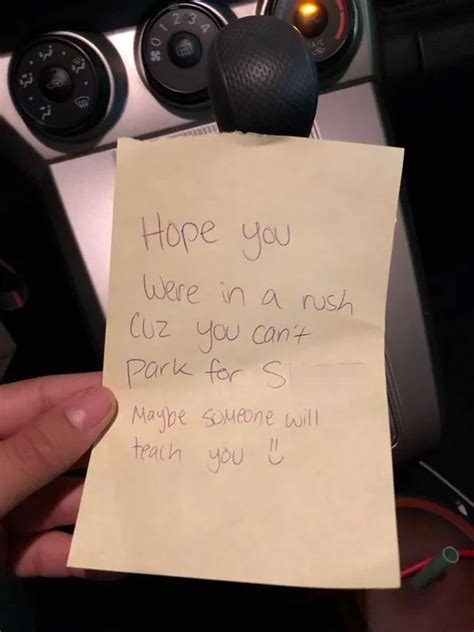 0 1 2 3 4
A/C
Hope you
Were in a rush
Cuz you can't
Park for S
Maybe someone will
teach you